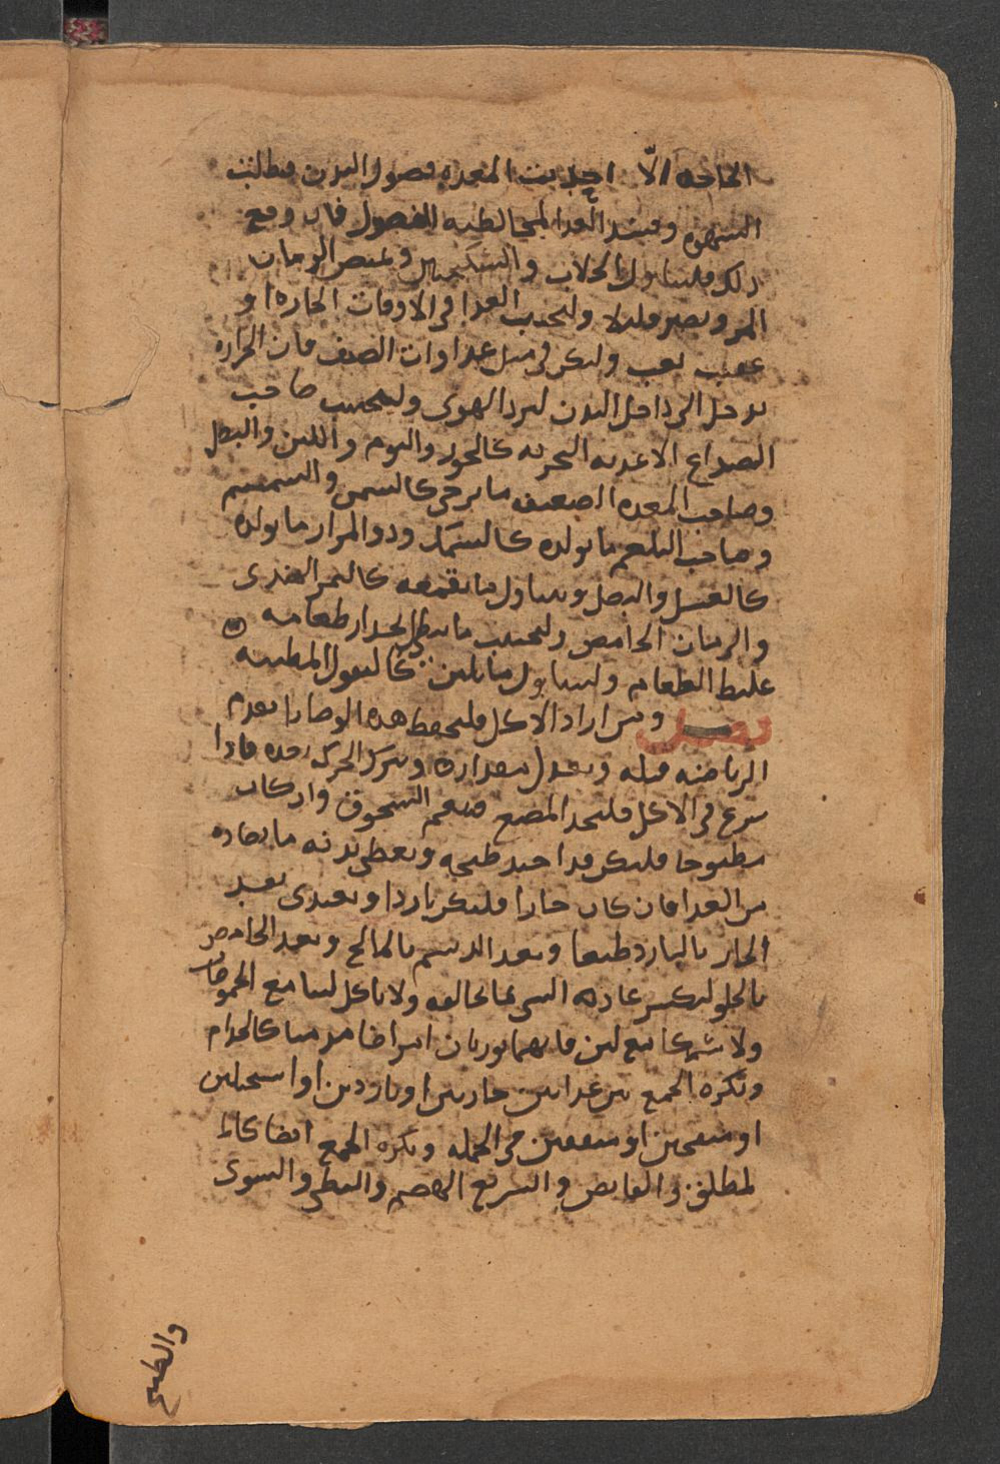 الحاجه الّا اجذبت المعده فضول البدن فبطلت
الشهوه وفسد الغدا لمخالطته الفضول فان وقع
ذلك فليتناول الجلاب والسكنجبين وليمتص الرمان
المر ويصبر قليلا وليجتنب الغدا في الاوقات الحاره او
عقيب تعب وليكن في مثل غداوات الصيف فان الحراره
تدخل الى داخل البدن لبرد الهوى وليجتنب صاحب
الصداع الاغديه المبخره كالجوز والثوم واللبن والبصل
وصاحب المعده الضعيفه ما يرخي كالسمن والسمسم
وصاحب البلغم ما يولده كالسمك وذو المرار ما يولده
كالعسل والبصل ويتناول ما يقمعه كالتمر الهندى
والرمان الحامض وليجتنب طعامه
غليظ الطعام وليتناول ما يلين كالبقول المطيبه
فصل ومن اراد الاكل فليحفظ هذه الوصايا يقدم
الرياضه قبله ويعدل مقداره ويترك الحركه بعده فاذا
شرع في الاكل فليجد المضغ فينعم المسحوق وان كان
مطبوخا فليكن قد اجيد طبخه ويعطى بدنه ما يضاده
من الغدا فان كان حارا فليكن باردا ويغتدى بعد
الحار بالبارد طبعا وبعد الدسم بالمالح وبعد الحامض
بالحلو ليكسر عاديه الشي بما يخالفه ولا ياكل لبنا مع الحموضات
ولا سمكا مع لبن فانهما يورثان امراضا مزمنه كالجدام
ويكره الجمع بين غداين حارين او باردين او
او منفخين او في الجمله ويكره الجمع ايضا
المطلق والقابض والسريع الهضم والبطى والشوى
والطبيخ